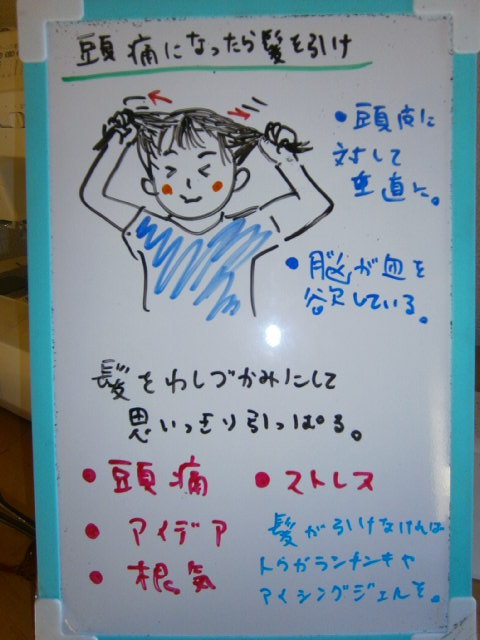 頭痛になったら髪を引け
・頭皮に
対して
垂直に。
・脳が血を
欲している。
髪をわしづかみにして
思いっきり引っぱる。
・頭痛 ・ストレス
・アイデア
・根気
髪が引けなければ
トウガランチンキや
アイシングジェルを。